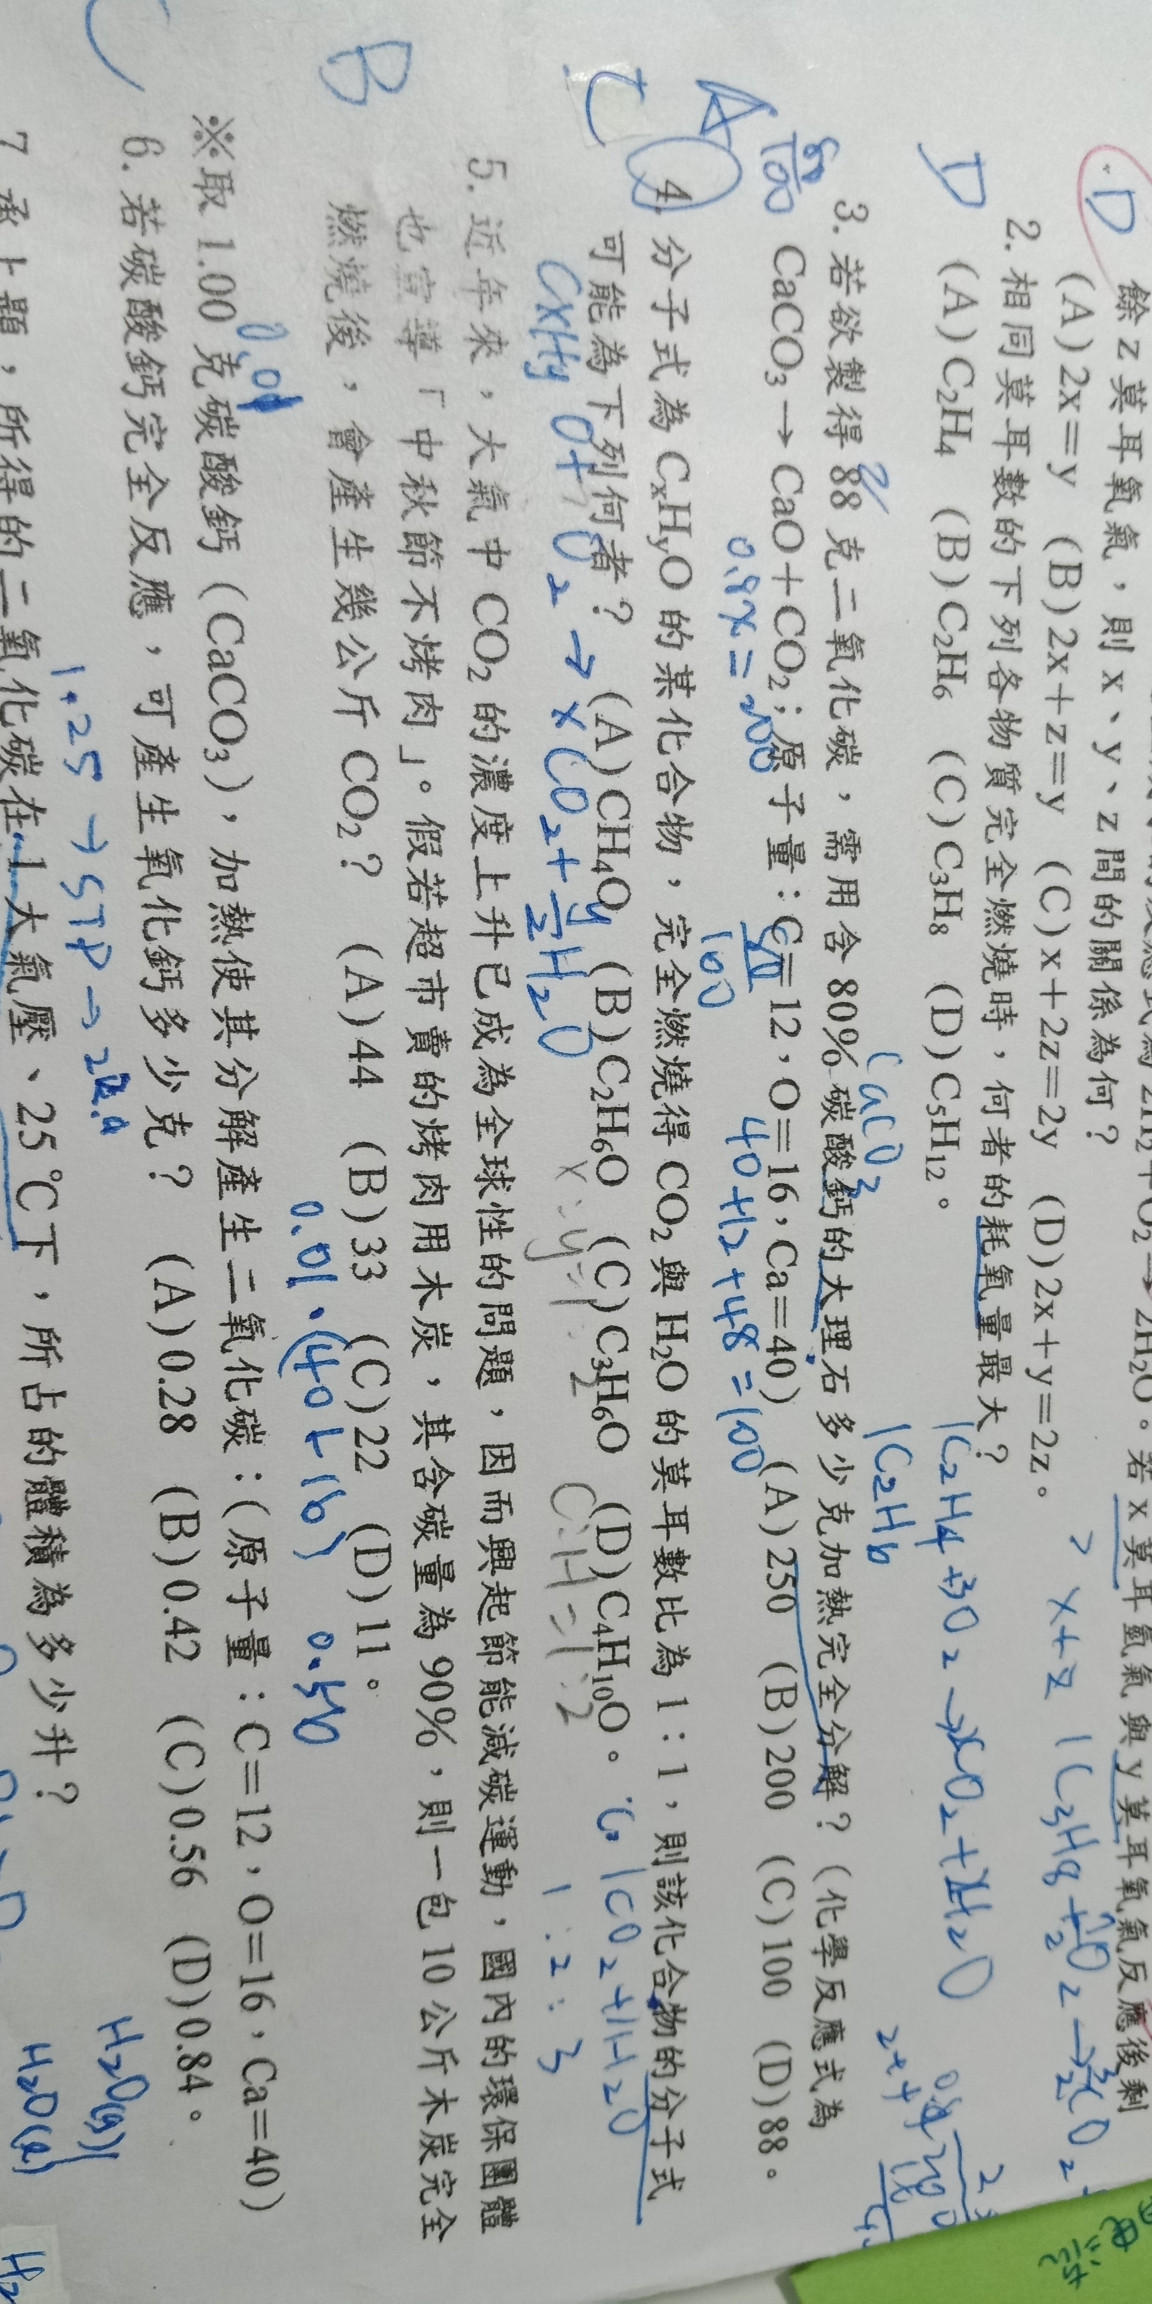 D
餘z莫耳氧氣，則x、y、z間的關係為何？
(A)2x＝y (B)2x＋z＝y (C)x＋2z＝2y (D)2x＋y＝2z。
x+z 1C3H8+
D
2.相同莫耳數的下列各物質完全燃燒時，何者的耗氧量最大？
(A)C2H4 (B)C2H6 (C)C3H8 (D)C5H12。
1C2H4+3O2→
1C2H6
CaCO3
3.若欲製得88克二氧化碳，需用含80%碳酸鈣的大理石多少克加熱完全分解？（化學反應式為
CaCO3→CaO＋CO2；原子量：C＝12，O＝16，Ca＝40） (A)250 (B)200 (C)100 (D)88。
A
80/100
0.8x=200
100
40+12+48=100
4.分子式為CxHyO的某化合物，完全燃燒得CO2與H2O的莫耳數比為1：1，則該化合物的分子式
可能為下列何者？ (A)CH4O (B)C2H6O (C)C3H6O (D)C4H10O。
C
1CO2+1H2O
CxHyO+O2→xCO2+y/2H2O
x:y=1:2
C:H=1:2
1:2:3
5.近年來，大氣中CO2的濃度上升已成為全球性的問題，因而興起節能減碳運動，國內的環保團體
也宣導「中秋節不烤肉」。假若超市賣的烤肉用木炭，其含碳量為90%，則一包10公斤木炭完全
燃燒後，會產生幾公斤CO2？ (A)44 (B)33 (C)22 (D)11。
B
0.01
0.01·(40+16) 0.56
※取1.00克碳酸鈣（CaCO3），加熱使其分解產生二氧化碳：（原子量：C＝12，O＝16，Ca＝40）
6.若碳酸鈣完全反應，可產生氧化鈣多少克？ (A)0.28 (B)0.42 (C)0.56 (D)0.84。
C
1.25→STP→
H2O(g)
H2O(l)
7.承上題，所得的二氧化碳在1大氣壓、25℃下，所占的體積為多少升？